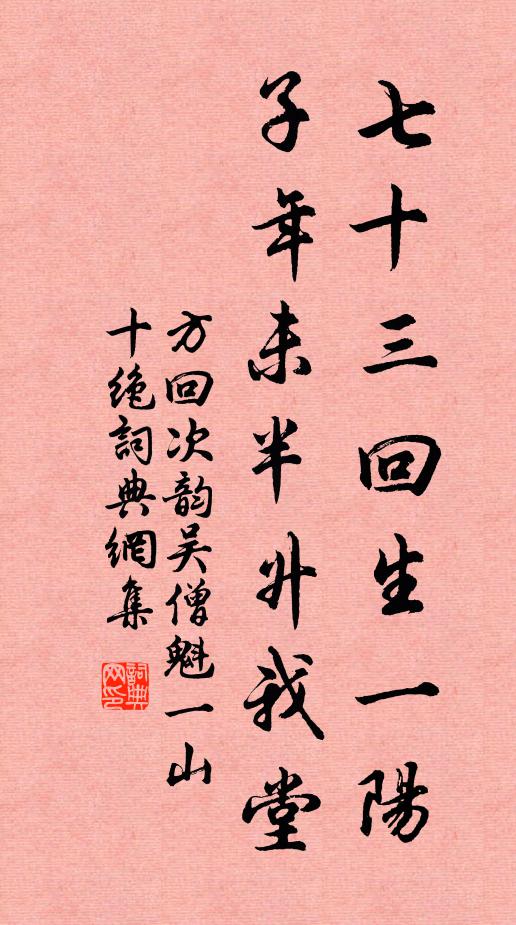 七十三回生一陽
子年未半升我堂
方回次韵吴僧魁一山
十绝詞典網集
詞典网印